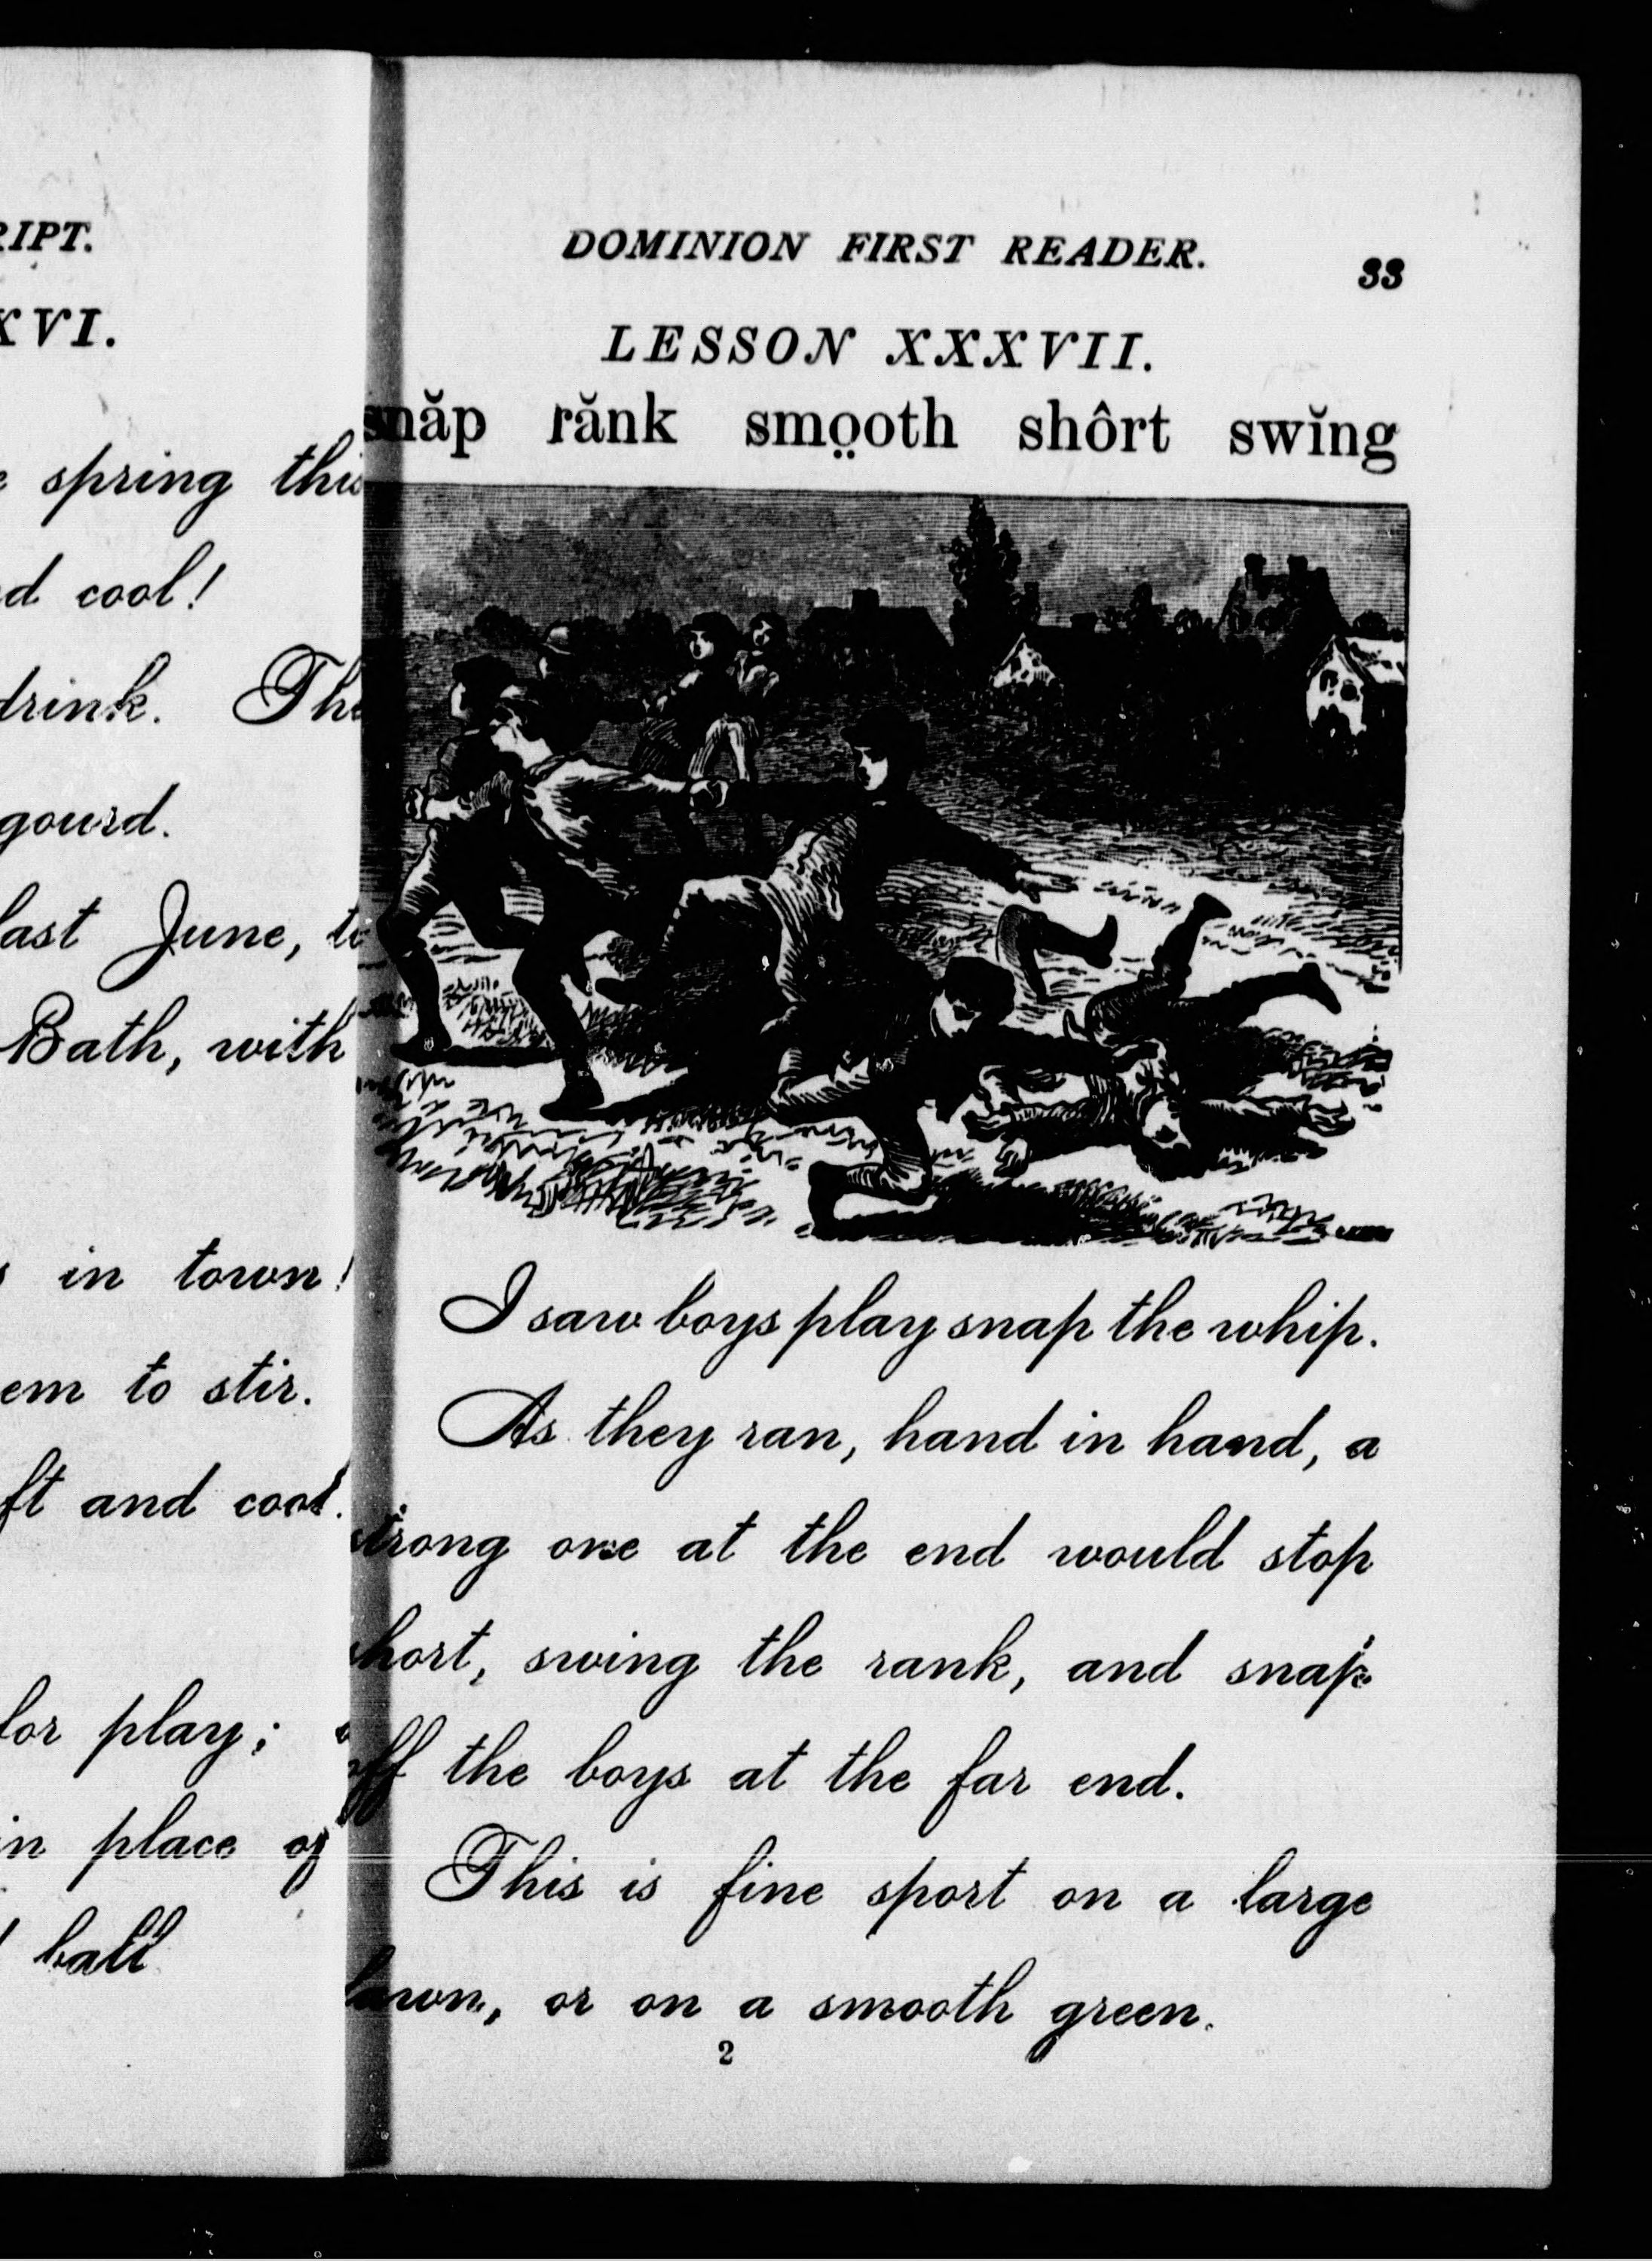 RIPT.
XVI.
spring this
d cool!
drink. The
gourd.
last June, to
Bath, with
in town!
em to stir.
ft and cool.
for play;
in place of
ball
DOMINION FIRST READER. 33
LESSON XXXVII.
snăp rănk smo̤oth shôrt swĭng
I saw boys play snap the whip.
As they ran, hand in hand, a
strong one at the end would stop
short, swing the rank, and snap
off the boys at the far end.
This is fine sport on a large
lawn, or on a smooth green.
2